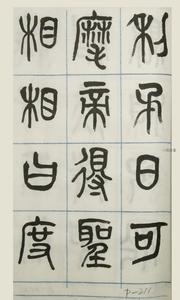 利日可
摩帝得聖
相相度
P-211